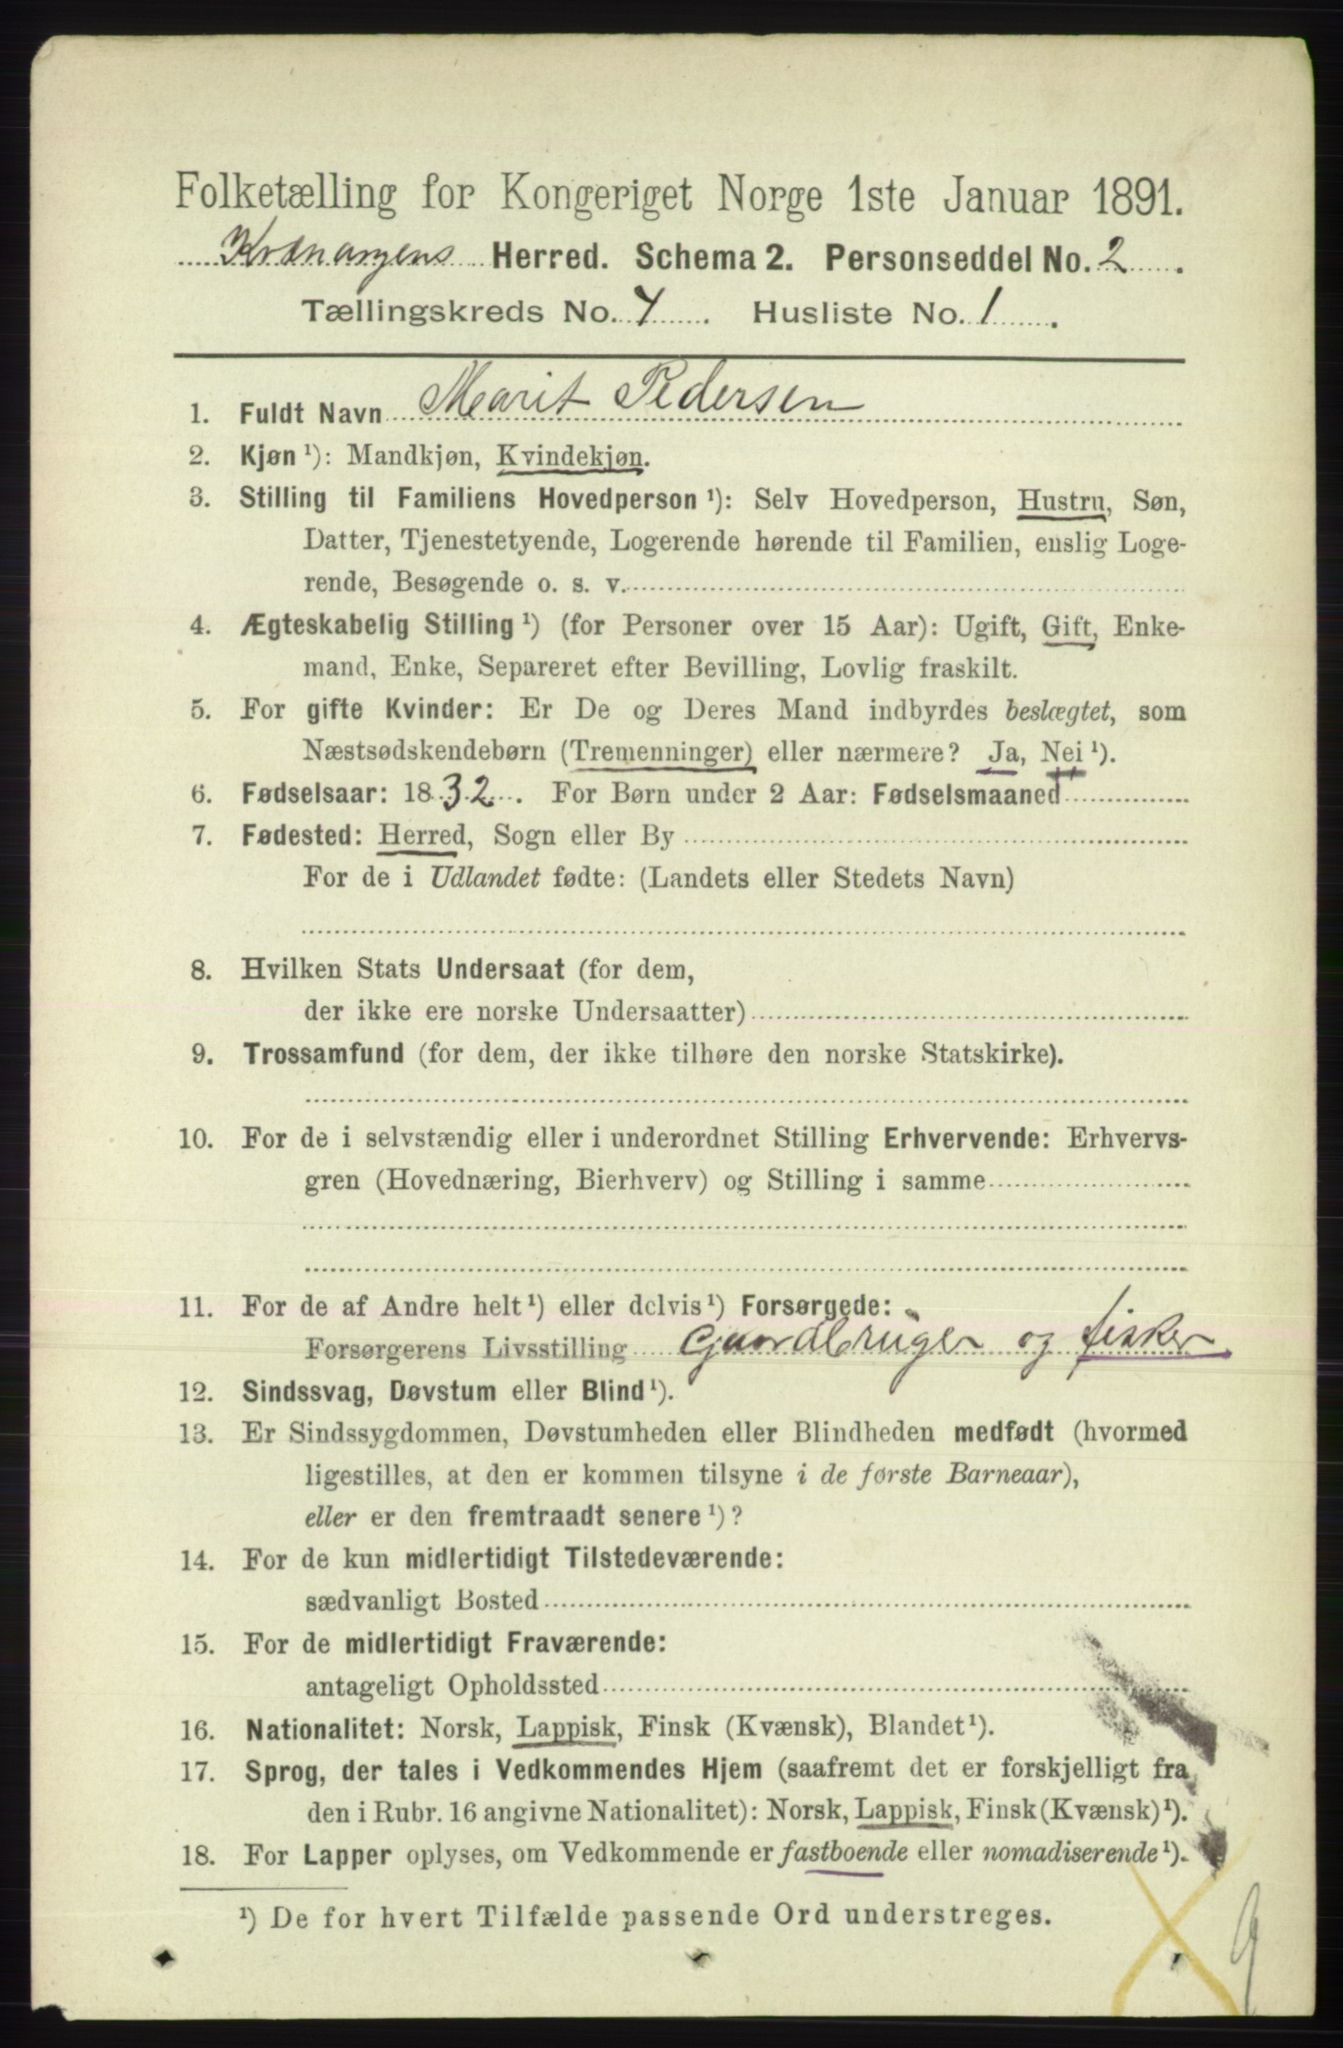 Folketælling for Kongeriget Norge 1ste Januar 1891.
Kvænangens Herred. Schema 2. Personseddel No. 2.
Tællingskreds No. 4. Husliste No. 1.
1. Fuldt Navn Marit Pedersen
2. Kjøn ¹): Mandkjøn, Kvindekjøn.
3. Stilling til Familiens Hovedperson ¹): Selv Hovedperson, Hustru, Søn,
Datter, Tjenestetyende, Logerende hørende til Familien, enslig Loge-
rende, Besøgende o. s. v.
4. Ægteskabelig Stilling ¹) (for Personer over 15 Aar): Ugift, Gift, Enke-
mand, Enke, Separeret efter Bevilling, Lovlig fraskilt.
5. For gifte Kvinder: Er De og Deres Mand indbyrdes beslægtet, som
Næstsødskendebørn (Tremenninger) eller nærmere? Ja, Nei ¹).
6. Fødselsaar: 1832. For Børn under 2 Aar: Fødselsmaaned
7. Fødested: Herred, Sogn eller By
For de i Udlandet fødte: (Landets eller Stedets Navn)
8. Hvilken Stats Undersaat (for dem,
der ikke ere norske Undersaatter)
9. Trossamfund (for dem, der ikke tilhøre den norske Statskirke).
10. For de i selvstændig eller i underordnet Stilling Erhvervende: Erhvervs-
gren (Hovednæring, Bierhverv) og Stilling i samme
11. For de af Andre helt ¹) eller delvis ¹) Forsørgede:
Forsørgerens Livsstilling Gaardbruger og fisker
12. Sindssvag, Døvstum eller Blind ¹).
13. Er Sindssygdommen, Døvstumheden eller Blindheden medfødt (hvormed
ligestilles, at den er kommen tilsyne i de første Barneaar),
eller er den fremtraadt senere ¹)?
14. For de kun midlertidigt Tilstedeværende:
sædvanligt Bosted
15. For de midlertidigt Fraværende:
antageligt Opholdssted
16. Nationalitet: Norsk, Lappisk, Finsk (Kvænsk), Blandet ¹).
17. Sprog, der tales i Vedkommendes Hjem (saafremt det er forskjelligt fra
den i Rubr. 16 angivne Nationalitet): Norsk, Lappisk, Finsk (Kvænsk) ¹).
18. For Lapper oplyses, om Vedkommende er fastboende eller nomadiserende ¹).
¹) De for hvert Tilfælde passende Ord understreges.
9